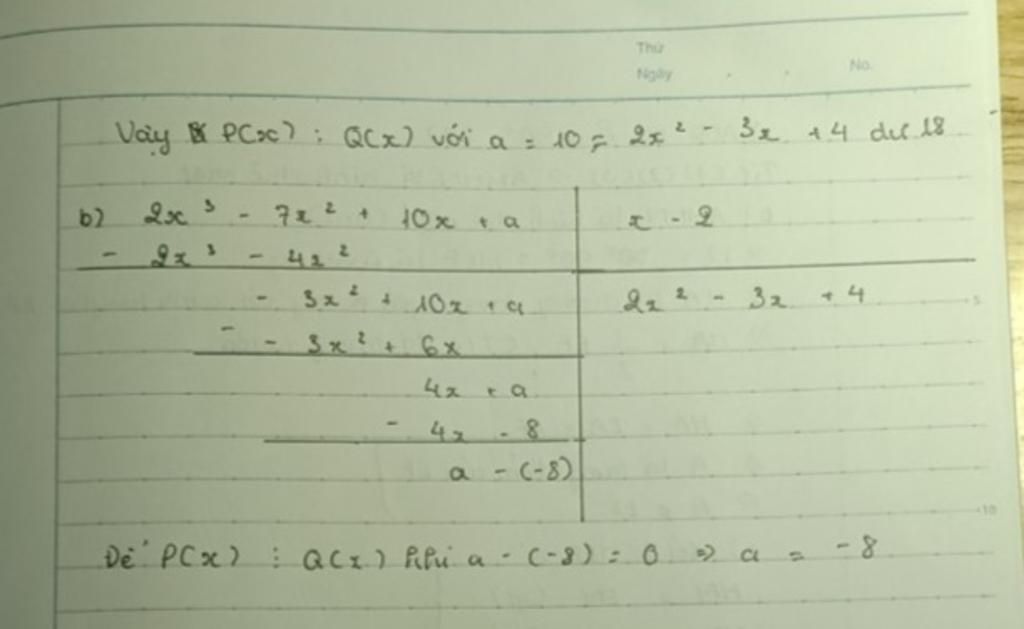 Thứ
Ngày . . No.
Vậy P(x) : Q(x) với a = 10 = 2x² - 3x + 4 dư 18
b) 2x³ - 7x² + 10x + a | x - 2
- 2x³ - 4x²
- 3x² + 10x + a | 2x² - 3x + 4
5
- - 3x² + 6x
4x + a
- 4x - 8
a - (-8)
10
Để P(x) ⋮ Q(x) thì a - (-8) = 0 ⇒ a = -8